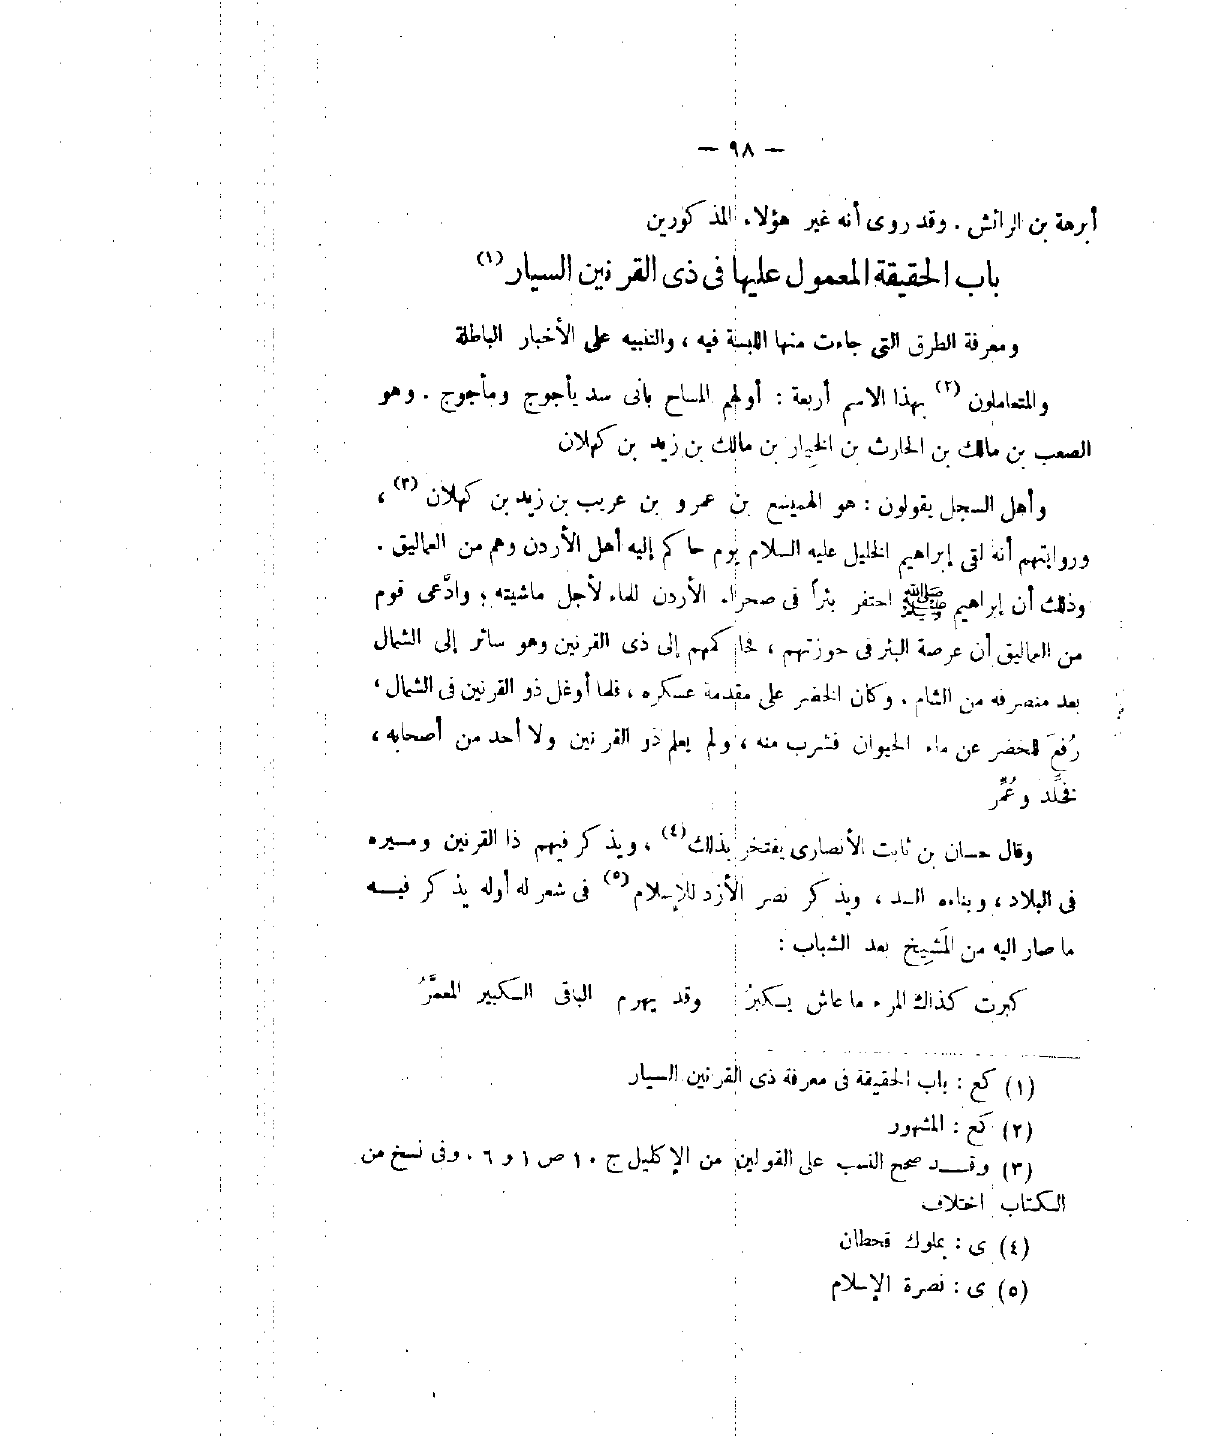 — ٩٨ —
أبرهة بن الرائش . وقد روى أنه غير هؤلاء المذكورين
باب الحقيقة المعمول عليها فى ذى القرنين السيار (١)
ومعرفة الطرق التى جاءت منها اللبسة فيه ، والتنبيه على الأخبار الباطلة
والمتعاملون (٢) بهذا الاسم أربعة : أولهم المساح بانى سد يأجوج ومأجوج . وهو
الصعب بن مالك بن الحارث بن الخِيار بن مالك بن زيد بن كهلان
وأهل السجل يقولون : هو الهميسع بن عمرو بن عريب بن زيد بن كهلان (٣) ،
وروايتهم أنه لقى إبراهيم الخليل عليه السلام يوم حاكم إليه أهل الأردن وهم من العماليق .
وذلك أن إبراهيم ﷺ احتفر بئراً فى صحراء الأردن للماء لأجل ماشيته ؛ وادَّعى قوم
من العماليق أن عرصة البئر فى حوزتهم ، فحاكمهم إلى ذى القرنين وهو سائر إلى الشمال
بعد منصرفه من الشام . وكان الخضر على مقدمة عسكره ، فلما أوغل ذو القرنين فى الشمال ،
رُفعَ للخضر عن ماء الحيوان فشرب منه ، ولم يعلم ذو القرنين ولا أحد من أصحابه ،
فخُلِّد وعُمِّر
وقال حسان بن ثابت الأنصارى يفتخر بذلك (٤) ، ويذكر فيهم ذا القرنين ومسيره
فى البلاد ، وبناءه السد ، ويذكر نصر الأزد للإسلام (٥) فى شعر له أوله يذكر فيـه
ما صار اليه من المَشِيخ بعد الشباب :
كبرت كذاك المرء ما عاش يكبرُ وقد يهرم الباقى الكبير المعمَّرُ
(١) كع : باب الحقيقة فى معرفة ذى القرنين السيار
(٢) كع : المشهور
(٣) وقـد صحح النسب على القولين من الإكليل ج ١٠ ص ١ و ٦ . وفى نسخ من
الكتاب اختلاف
(٤) ى : بملوك قحطان
(٥) ى : نصرة الإسلام